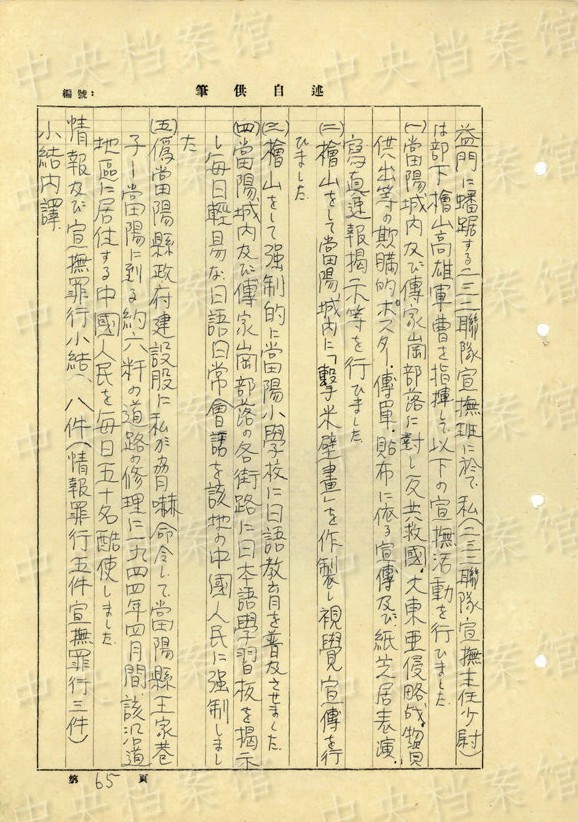 編號：
筆供自述
益門に蟠踞する二三二聯隊宣撫班に於て私(二三二聯隊宣撫主任少尉)
は部下檜山高雄軍曹を指揮して以下の宣撫活動を行ひました
(一)當陽城內及び傳家崗部落に対し反共救國.大東亜侵略戦物資
供出等の欺瞞的ポスター.傳單.貼布に依る宣傳及び紙芝居表演.
寫真速報揭示等を行ひました
(二)檜山をして當陽城內に「擊米壁畫」を作製し視覺宣傳を行
ひました
(三)檜山をして强制的に當陽小學校に日語教育を普及させました
(四)當陽城內及び傳家崗部落の各街路に日本語學習板を揭示
し每日輕易な日語日常會話を該地の中國人民に强制しまし
た
(五)偽當陽縣政府建設股に私が脅嚇命令して當陽縣王家巷
子ー當陽に到る約六粁の道路の修理に一九四四年四月間該沿道
地區に居住する中國人民を每日五十名酷使しました
情報及び宣撫罪行小結、八件(情報罪行五件宣撫罪行三件)
小結內譯.
第 65 頁
中央档案馆